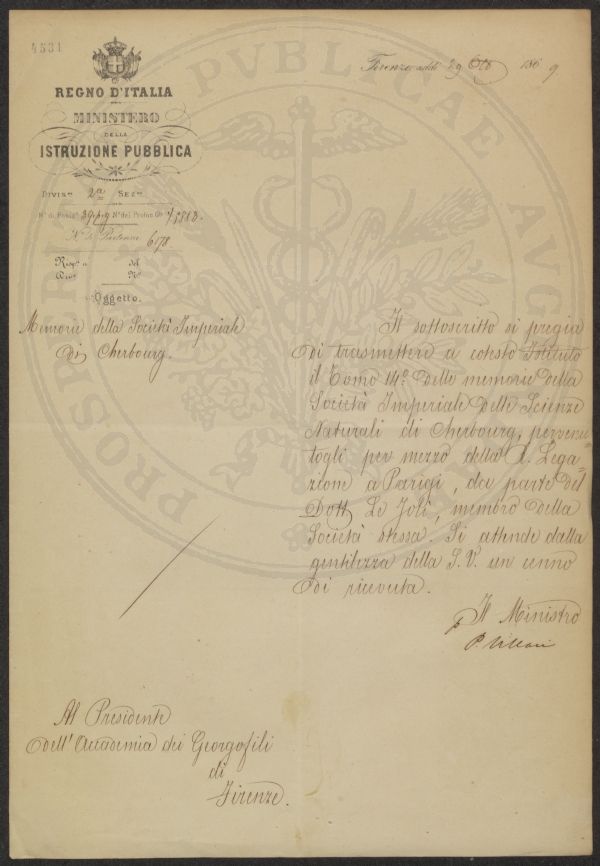 4531
Firenze addì 29 Ott 1869
REGNO D'ITALIA
MINISTERO
DELLA
ISTRUZIONE PUBBLICA
DIVIS.ne 2a SEZ.ne
N.o di Posiz.e N.o del Protoc. Gle
N. di Partenza 6178
Risp.a a del
Div.e N.o
Oggetto.
Memorie della Società Imperiale
di Cherbourg.
Il sottoscritto si pregia
di trasmettere a cotesto Istituto
il Tomo 14o delle memorie della
Società Imperiale delle Scienze
Naturali di Cherbourg, pervenu=
togli per mezzo della R. Lega=
zione a Parigi, da parte del
Dott. Le Joli, membro della
Società stessa. Si attende dalla
gentilezza della S. V. un cenno
di ricevuta.
p Il Ministro
P. Villari
Al Presidente
dell'Accademia dei Georgofili
di
Firenze.
PROSPERITATI PVBLICAE AVGENDAE